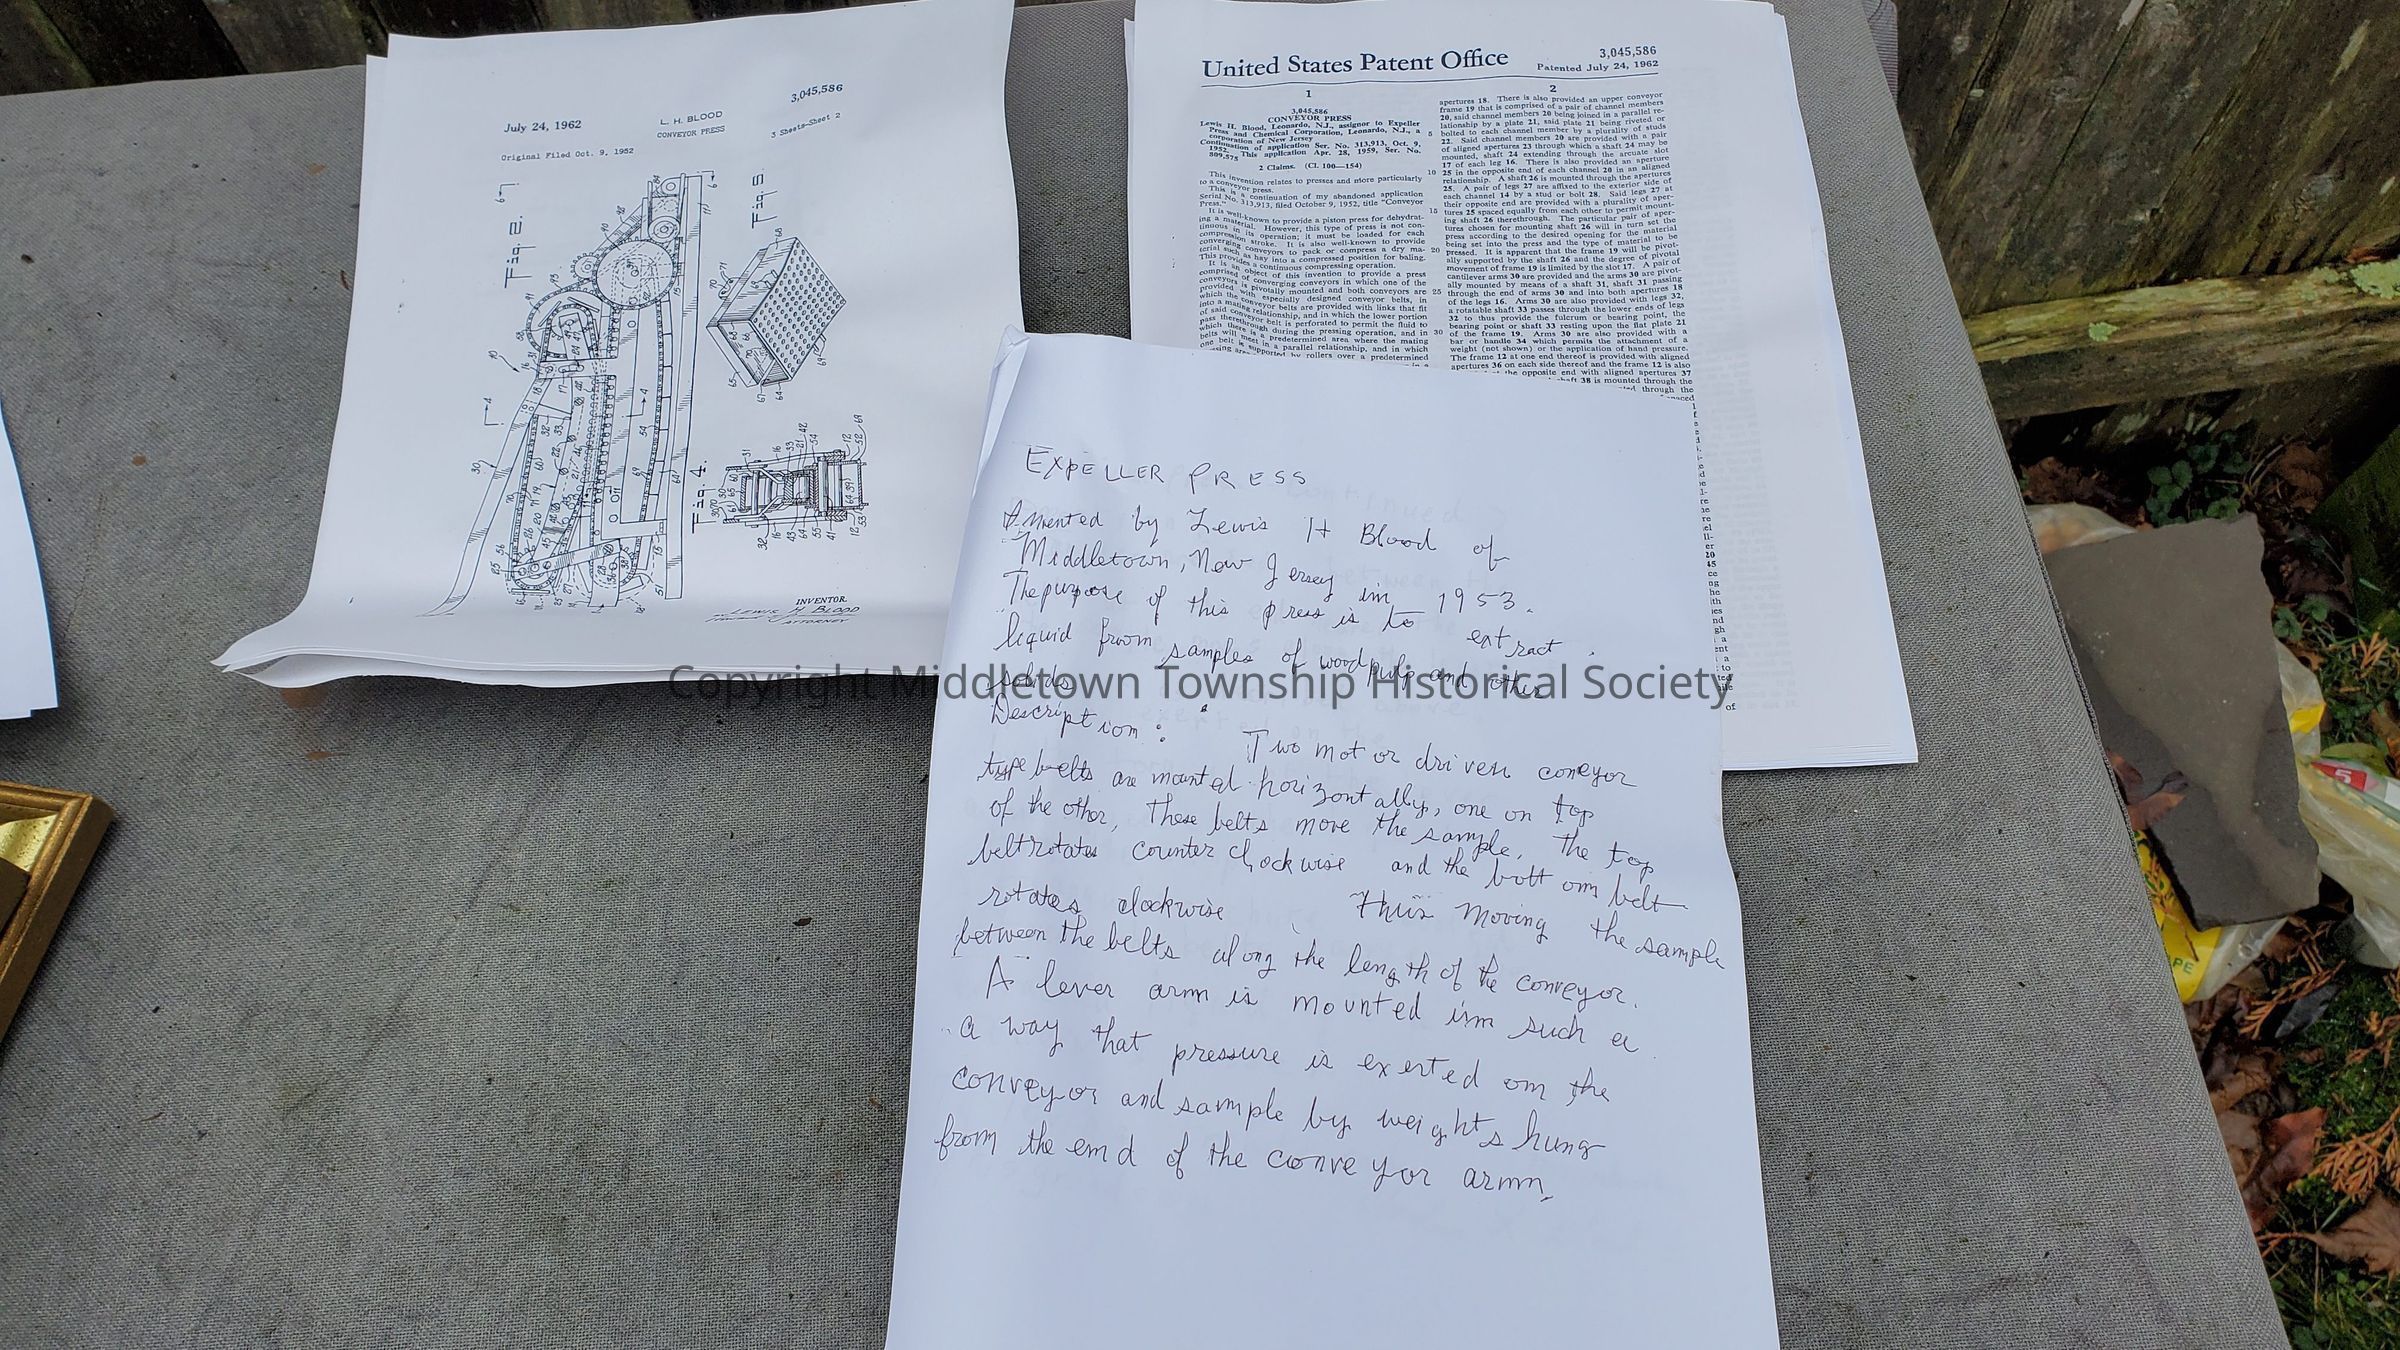 3,045,586
July 24, 1962
L. H. BLOOD
CONVEYOR PRESS
3 Sheets-Sheet 2
Original Filed Oct. 9, 1952
Fig. 2.
Fig. 5
Fig. 4.
INVENTOR.
LEWIS H. BLOOD
ATTORNEY
United States Patent Office
3,045,586
Patented July 24, 1962
1
3,045,586
CONVEYOR PRESS
Lewis H. Blood, Leonardo, N.J., assignor to Expeller
Press and Chemical Corporation, Leonardo, N.J., a
corporation of New Jersey
Continuation of application Ser. No. 313,913, Oct. 9,
1952. This application Apr. 28, 1959, Ser. No.
809,575
2 Claims. (Cl. 100—154)
This invention relates to presses and more particularly
to a conveyor press.
This is a continuation of my abandoned application
Serial No. 313,913, filed October 9, 1952, title "Conveyor
Press."
It is well-known to provide a piston press for dehydrat-
ing a material. However, this type of press is not con-
tinuous in its operation; it must be loaded for each
compression stroke. It is also well-known to provide
converging conveyors to pack or compress a dry ma-
terial such as hay into a compressed position for baling.
This provides a continuous compressing operation.
It is an object of this invention to provide a press
comprised of converging conveyors in which one of the
conveyors is pivotally mounted and both conveyors are
provided with especially designed conveyor belts, in
which the conveyor belts are provided with links that fit
into a mating relationship, and in which the lower portion
of said conveyor belt is perforated to permit the fluid to
pass therethrough during the pressing operation, and in
which there is a predetermined area where the mating
belts will meet in a parallel relationship, and in which
one belt is supported by rollers over a predetermined
2
apertures 18. There is also provided an upper conveyor
frame 19 that is comprised of a pair of channel members
20, said channel members 20 being joined in a parallel re-
lationship by a plate 21, said plate 21 being riveted or
bolted to each channel member by a plurality of studs
22. Said channel members 20 are provided with a pair
of aligned apertures 23 through which a shaft 24 may be
mounted, shaft 24 extending through the arcuate slot
17 of each leg 16. There is also provided an aperture
25 in the opposite end of each channel 20 in an aligned
relationship. A shaft 26 is mounted through the apertures
25. A pair of legs 27 are affixed to the exterior side of
each channel 14 by a stud or bolt 28. Said legs 27 at
their opposite end are provided with a plurality of aper-
tures 25 spaced equally from each other to permit mount-
ing shaft 26 therethrough. The particular pair of aper-
tures chosen for mounting shaft 26 will in turn set the
press according to the desired opening for the material
being set into the press and the type of material to be
pressed. It is apparent that the frame 19 will be pivot-
ally supported by the shaft 26 and the degree of pivotal
movement of frame 19 is limited by the slot 17. A pair of
cantilever arms 30 are provided and the arms 30 are pivot-
ally mounted by means of a shaft 31, shaft 31 passing
through the end of arms 30 and into both apertures 18
of the legs 16. Arms 30 are also provided with legs 32,
a rotatable shaft 33 passes through the lower ends of legs
32 to thus provide the fulcrum or bearing point, the
bearing point or shaft 33 resting upon the flat plate 21
of the frame 19. Arms 30 are also provided with a
bar or handle 34 which permits the attachment of a
weight (not shown) or the application of hand pressure.
The frame 12 at one end thereof is provided with aligned
apertures 36 on each side thereof and the frame 12 is also
the opposite end with aligned apertures 37
shaft 38 is mounted through the
EXPELLER PRESS
Invented by Lewis H Blood of
Middletown, New Jersey in 1953.
The purpose of this press is to extract
liquid from samples of wood pulp and other
solids
Description: Two motor driven coneyor
type belts are mounted horizontally, one on top
of the other, These belts move the sample, The top
belt rotates counter clockwise and the bottom belt
rotates clockwise Thus moving the sample
between the belts along the length of the conveyor.
A lever arm is mounted in such a
a way that pressure is exerted on the
conveyor and sample by weights hung
from the end of the conveyor arm,
Copyright Middletown Township Historical Society